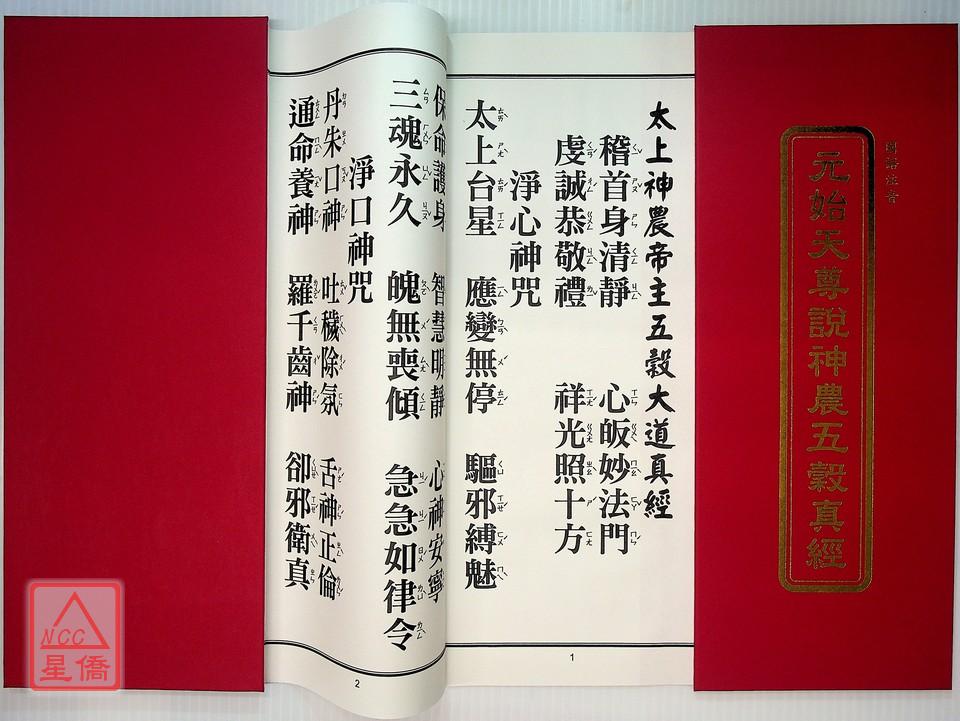 國語注音
元始天尊說神農五穀真經
太上神農帝主五穀大道真經
稽首身清靜 心皈妙法門
虔誠恭敬禮 祥光照十方
淨心神咒
太上台星 應變無停 驅邪縛魅
1
保命護身 智慧明靜 心神安寧
三魂永久 魄無喪傾 急急如律令
淨口神咒
丹朱口神 吐穢除氛 舌神正倫
通命養神 羅千齒神 卻邪衛真
2
NCC
星僑